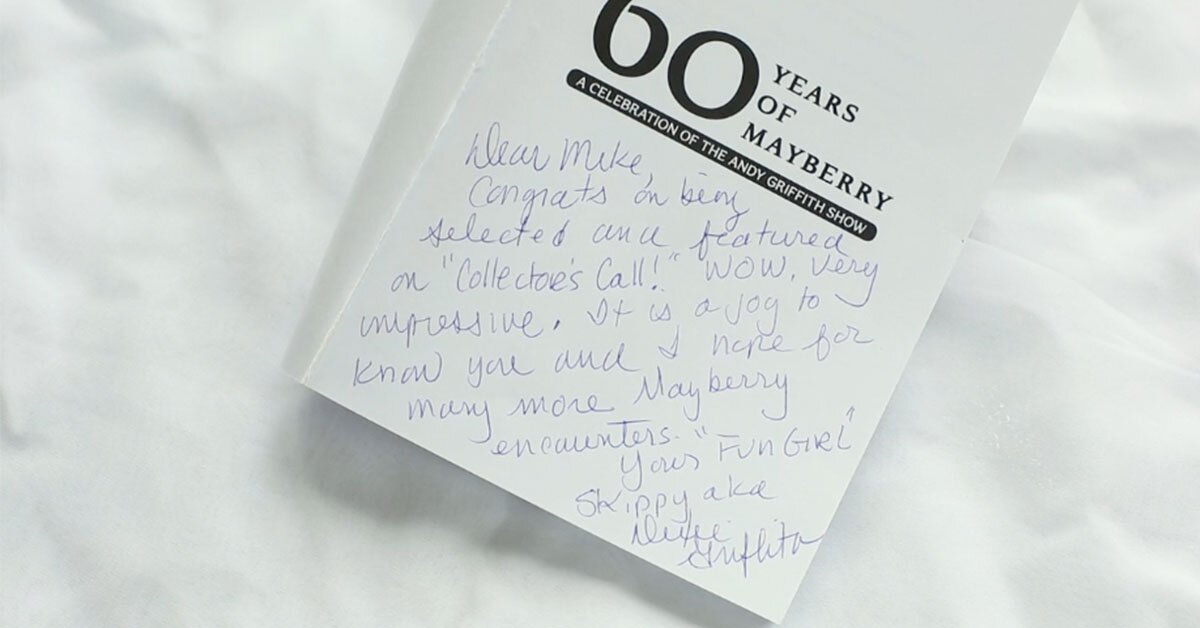 60 YEARS
OF
MAYBERRY
A CELEBRATION OF THE ANDY GRIFFITH SHOW
Dear Mike,
Congrats on being
selected and featured
on "Collector's Call!" WOW, very
impressive. It is a joy to
know you and I hope for
many more Mayberry
encounters.
Your "FUN GIRL"
Skippy aka
Dixie
Griffith